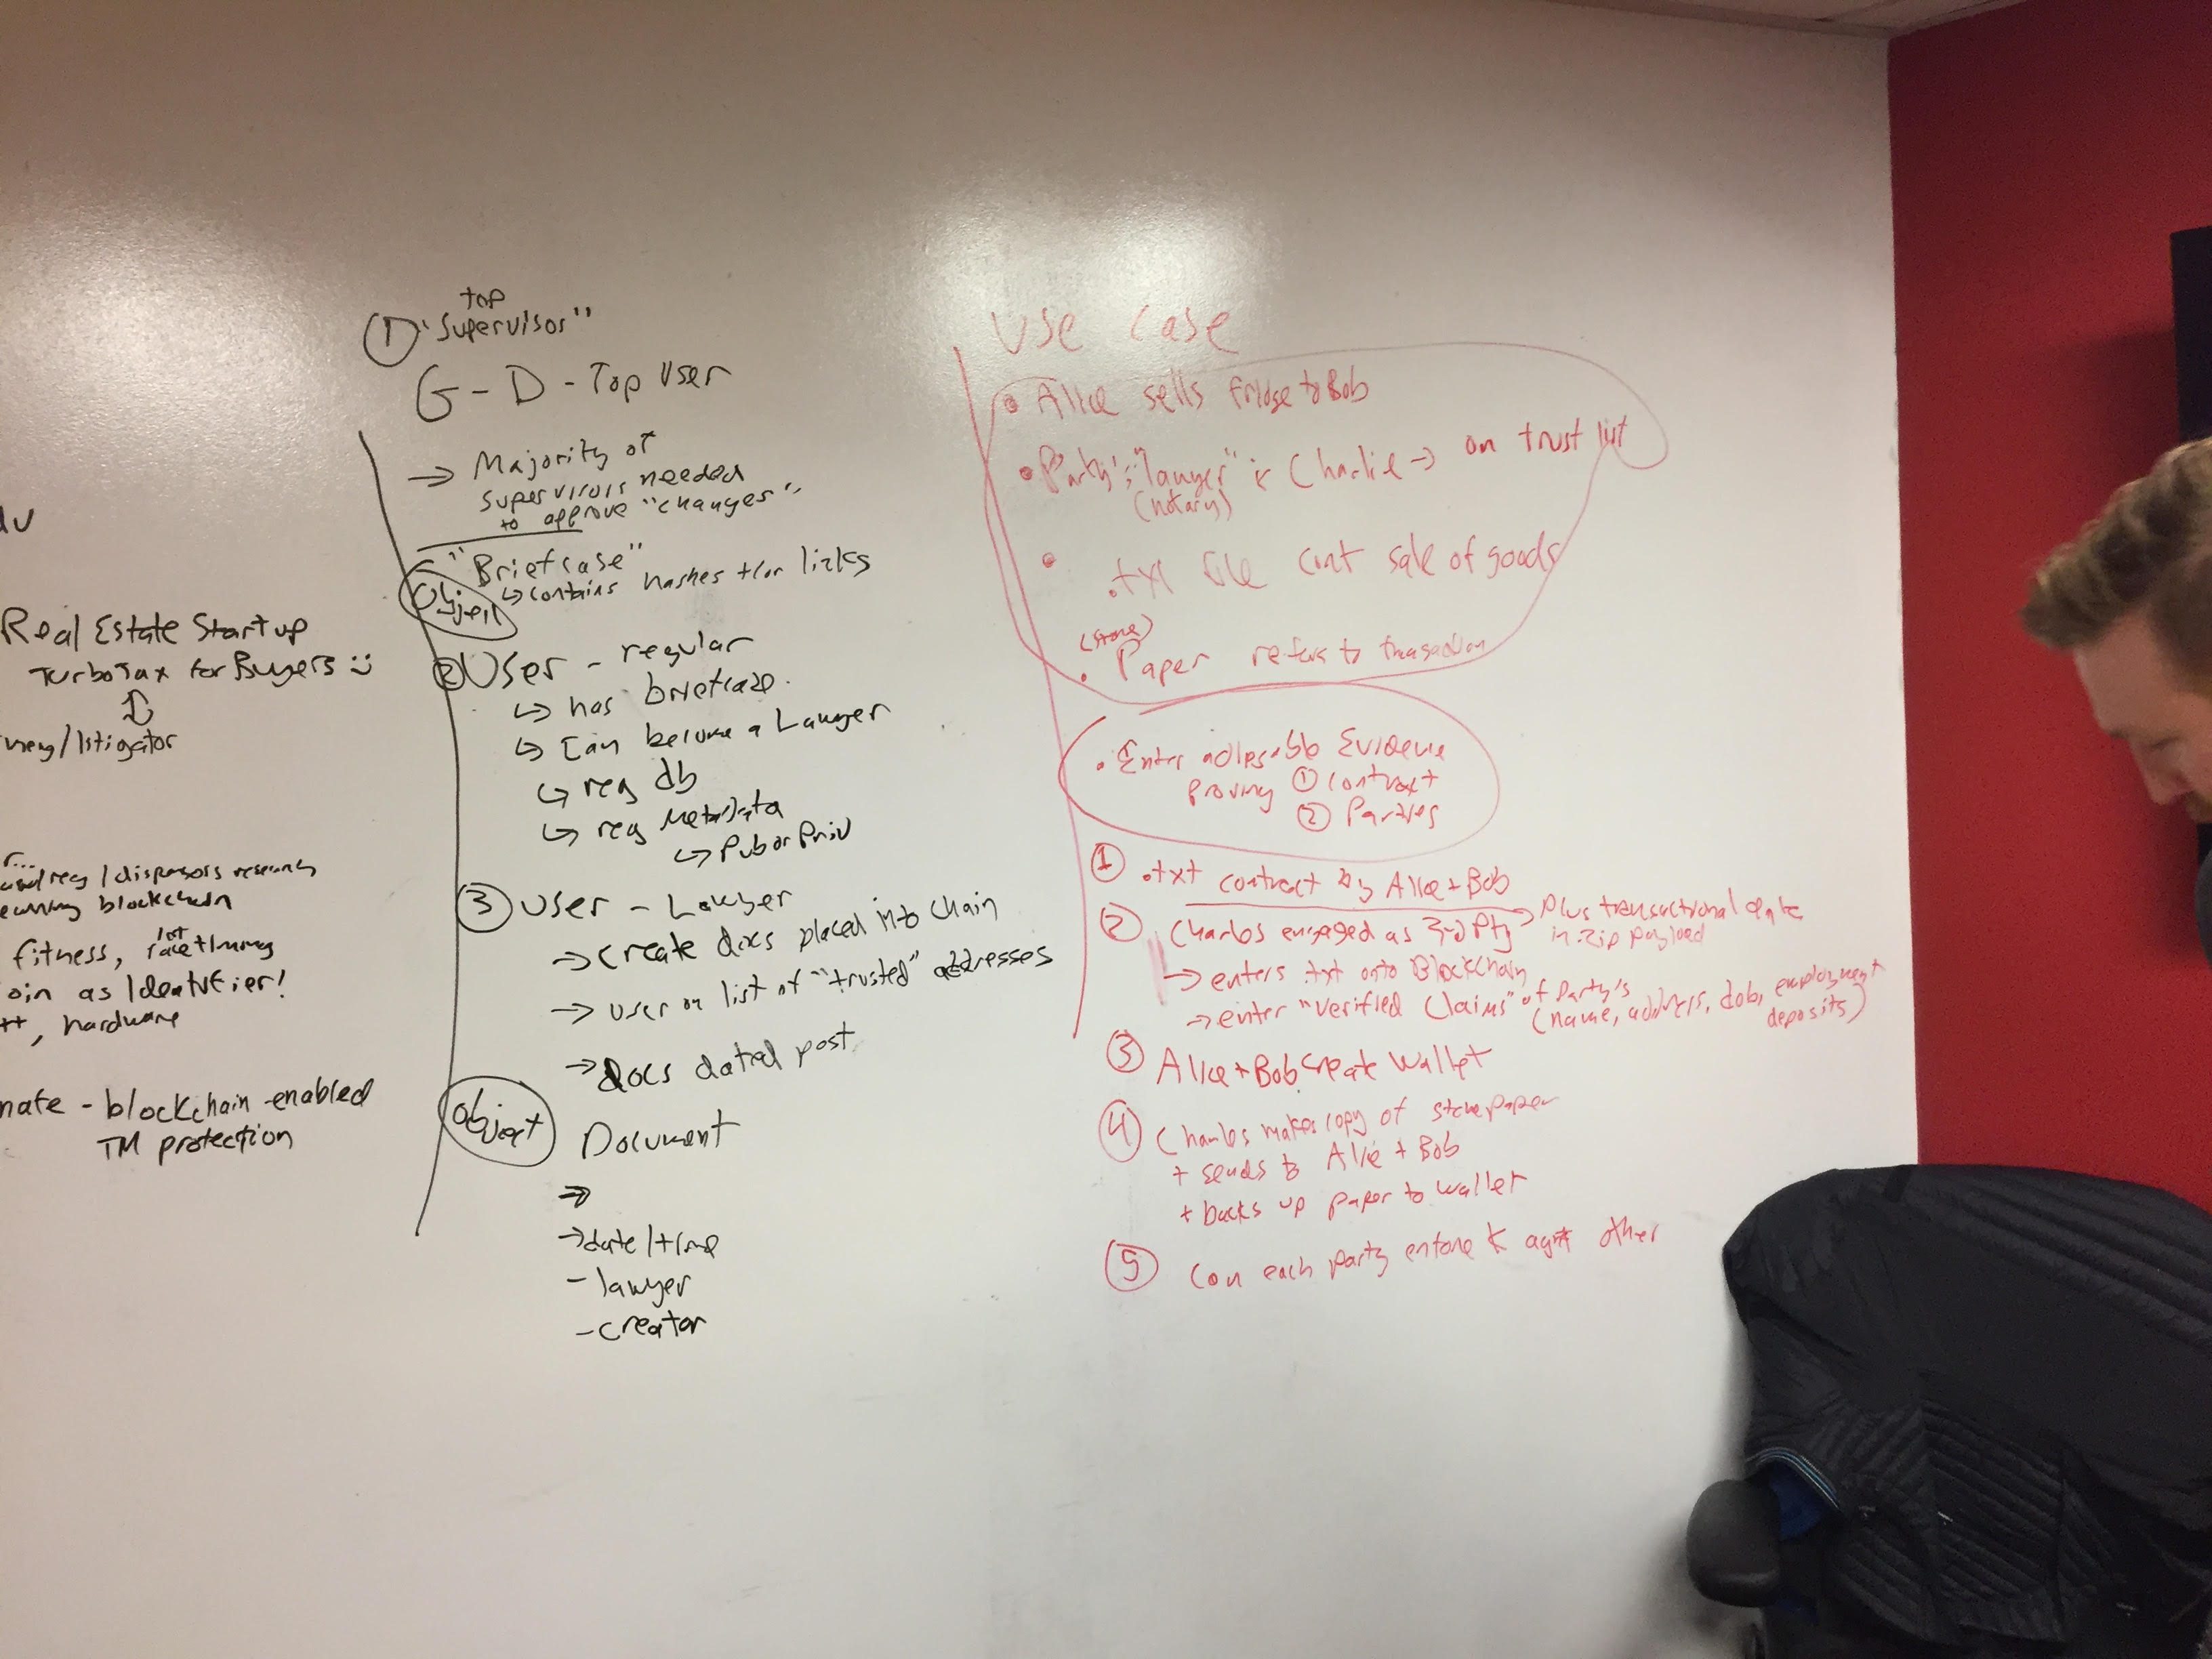 Real Estate Startup
TurboTax for Buyers
/litigator
blockchain
fitness,
as Identifier!
, hardware
- blockchain-enabled
TM protection
top
① "Supervisor"
G-D - Top User
→ Majority of
supervisors needed
to approve "changes"
"Briefcase"
Object ↳ contains hashes +/or links
② User - regular
↳ has briefcase.
↳ Can become a Lawyer
↳ reg db
↳ reg Metadata
↳ Pub or Priv
③ User - Lawyer
→ create docs placed into chain
→ user on list of "trusted" addresses
→ docs dated post
object Document
→
→ date/time
- lawyer
- creator
Use Case
• Alice sells fridge to Bob
• Party's "lawyer" is Charlie → on trust list
(notary)
• .txt file cont sale of goods
(stone)
• Paper refers to transaction
• Enter Evidence
proving ① Contract
② Parties
① .txt contract by Alice + Bob
② engaged as 3rd Pty → Plus transactional
in .zip payload
→ enters .txt onto Blockchain
→ enter "Verified Claims" of Party's
(name, address, dob, employment
deposits)
③ Alice + Bob create Wallet
④ makes copy of stone paper
+ sends to Alice + Bob
+ backs up paper to wallet
⑤ Can each party agst other